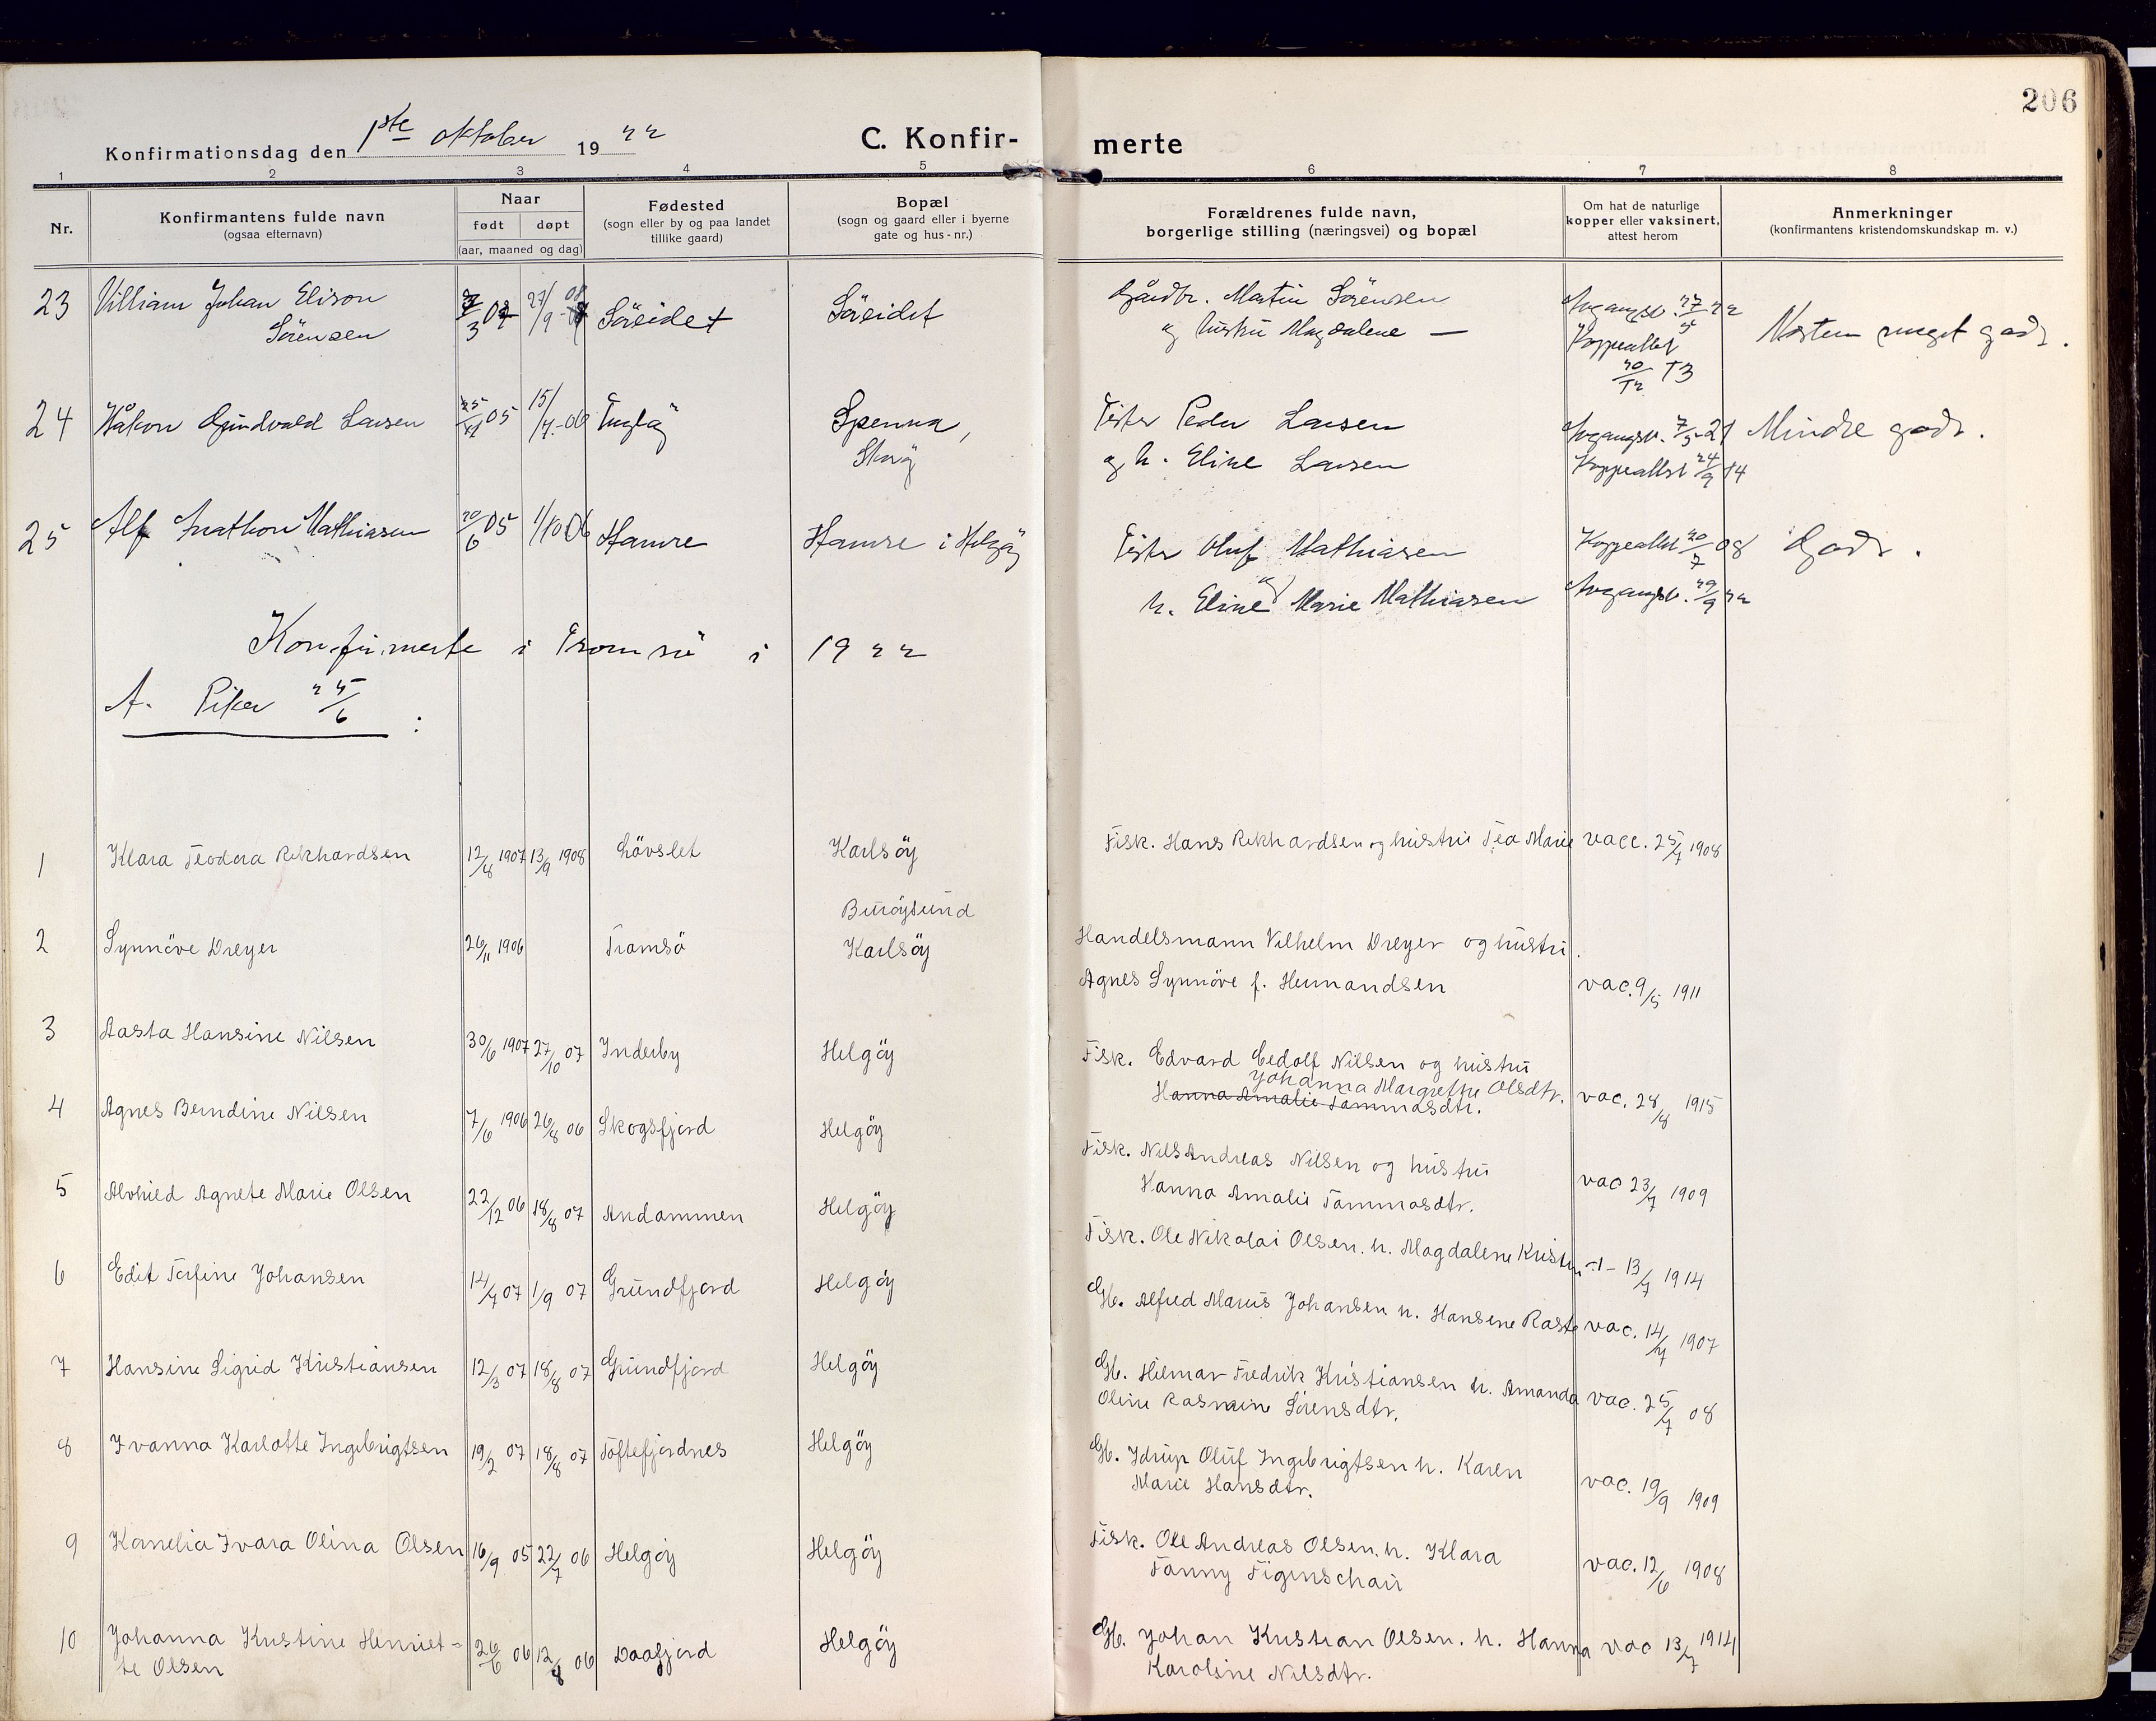 206
Konfirmationsdag den 1ste oktober 1922
C. Konfir-
merte
1 2 3 4 5 6 7 8
Nr.
Konfirmantens fulde navn
(ogsaa efternavn)
Naar
født døpt
(aar, maaned og dag)
Fødested
(sogn eller by og paa landet
tillike gaard)
Bopæl
(sogn og gaard eller i byerne
gate og hus-nr.)
Forældrenes fulde navn,
borgerlige stilling (næringsvei) og bopæl
Om hat de naturlige
kopper eller vaksinert,
attest herom
Anmerkninger
(konfirmantens kristendomskundskap m. v.)
23 Villiam Johan Elison Söreidet Söreidet Gårdbr. Martin Sörensen
Sörensen og hustru Magdalene — Koppeattest Næsten meget godt.
20/12 13
24 Håkon Larsen 15/7.-06 Spenna, Fisker Peder Larsen Avgangsv. 7/5-21 Mindre godt.
og h. Eline Larsen Koppeattest 24/9 14
25 Alf Mathiasen 20/6 05 1/10 06 Hamre Hamre i Helgöy Fisker Oluf Mathiasen Koppeattest 20/7 08 Godt.
og
h. Eline Marie Mathiasen Avgangsv. 29/9 22
Konfirmerte i Tromsö i 1922
A. Piker 25/6 :
1 Klara Teodora Rikhardsen 12/8 1907 13/9 1908 Lövslet Karlsöy Fisk. Hans Rikhardsen og hustru Tea Marie vacc. 25/7 1908
Buröysund
2 Synnöve Dreyer 26/11 1906 Tromsö Karlsöy Handelsmann Vilhelm Dreyer og hustru
Agnes Synnöve f. Hemmandsen vac. 9/5 1911
3 Aasta Hansine Nilsen 30/6 1907 27/10 07 Inderby Helgöy Fisk. Edvard Eedolf Nilsen og hustru
Johanna Margrethe Olsdtr.
Hanna Amalie Tommasdtr. vac. 28/8 1915
4 Agnes Berndine Nilsen 7/6 1906 26/8 06 Skogsfjord Helgöy Fisk. Nils Andreas Nilsen og hustru
Hanna Amalie Tommasdtr. vac 23/7 1909
5 Alvhild Agnete Marie Olsen 22/12 06 18/8 07 Andammen Helgöy Fisk. Ole Nikolai Olsen. h. Magdalene 13/7 1914
6 Edit Torfine Johansen 14/4 07 1/9 07 Grundfjord Helgöy Gb. Alfred Marius Johansen h. Hansine Raste vac. 14/7 1907
7 Hansine Sigrid Kristiansen 12/3 07 18/8 07 Grundfjord Helgöy Gb. Hilmar Fredrik Kristiansen h. Amanda vac. 25/7 08
Oline Rasmine Sörensdtr.
8 Ivanna Karlotte Ingebrigtsen 19/2 07 18/8 07 Toftefjordnes Helgöy Gb. Idrup Oluf Ingebrigtsen h. Karen
Marie Hansdtr. vac. 19/9 1909
9 Kornelia Ivara Olina Olsen 16/9 05 22/7 06 Helgöy Helgöy Fisk. Ole Andreas Olsen. h. Klara
Fanny Figenschau vac. 12/6 1908
10 Johanna Kristine Henriet- 26/6 06 12/8 06 Daafjord Helgöy Gb. Johan Kristian Olsen. h. Hanna vac 13/7 1914
te Olsen Karoline Nilsdtr.